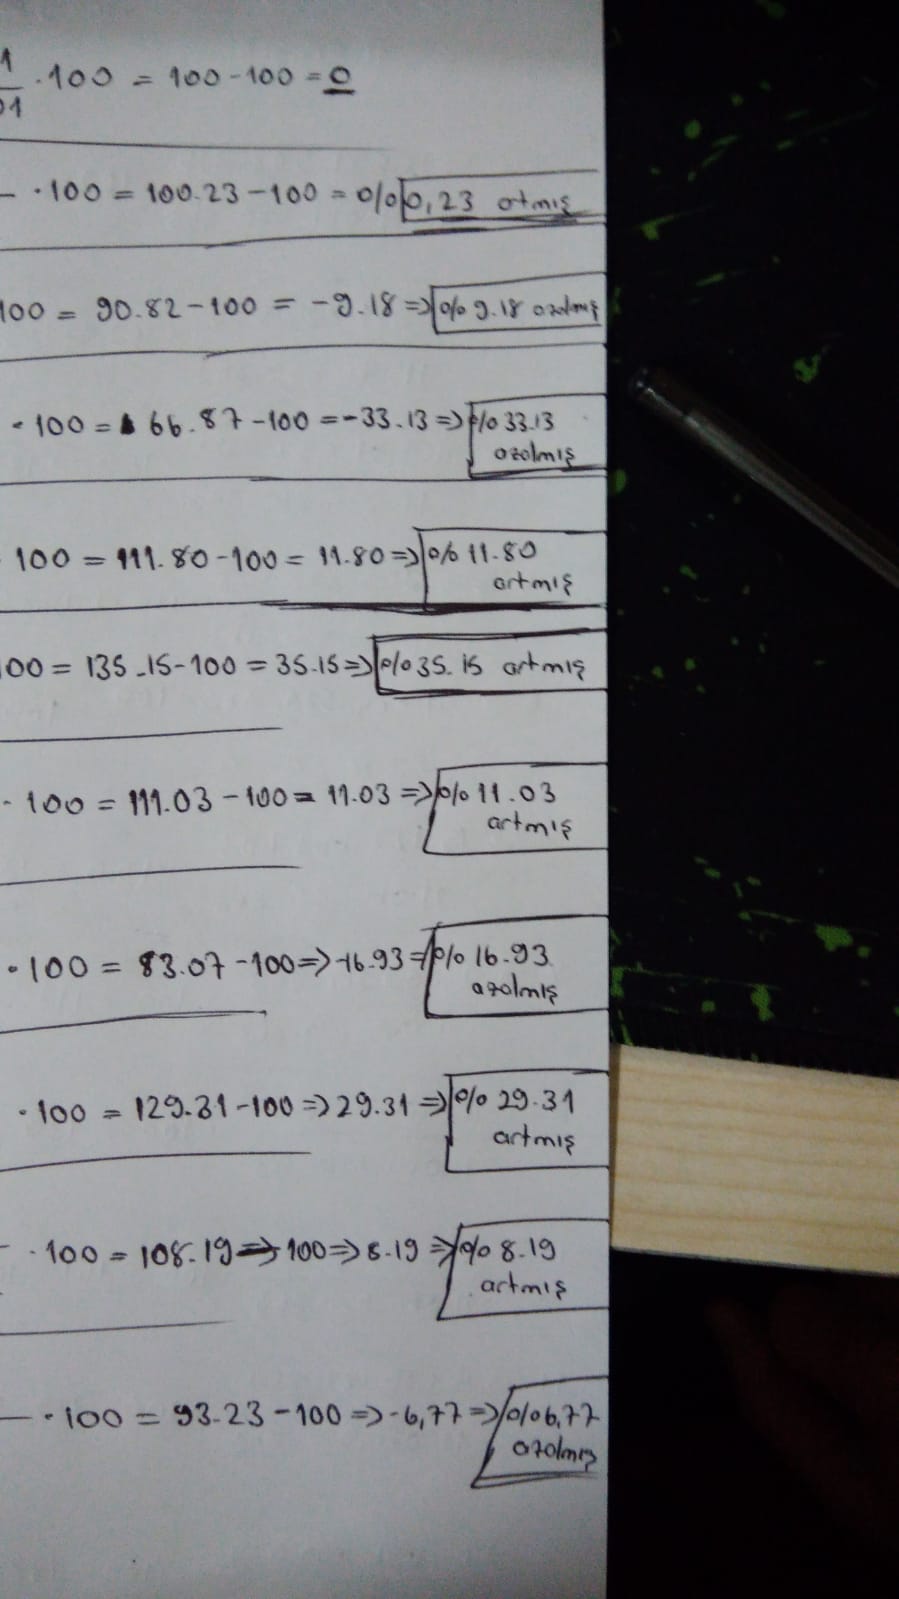 1/01 · 100 = 100 - 100 = 0
- · 100 = 100.23 - 100 = %0,23 artmış
100 = 90.82 - 100 = -9.18 => %9.18 azalmış
· 100 = 66.87 - 100 = -33.13 => %33.13
azalmış
100 = 111.80 - 100 = 11.80 => %11.80
artmış
00 = 135.15 - 100 = 35.15 => %35.15 artmış
· 100 = 111.03 - 100 = 11.03 => %11.03
artmış
· 100 = 83.07 - 100 => -16.93 => %16.93
azalmış
· 100 = 129.31 - 100 => 29.31 => %29.31
artmış
- · 100 = 108.19 => 100 => 8.19 => %8.19
artmış
- · 100 = 93.23 - 100 => -6,77 => %6,77
azalmış